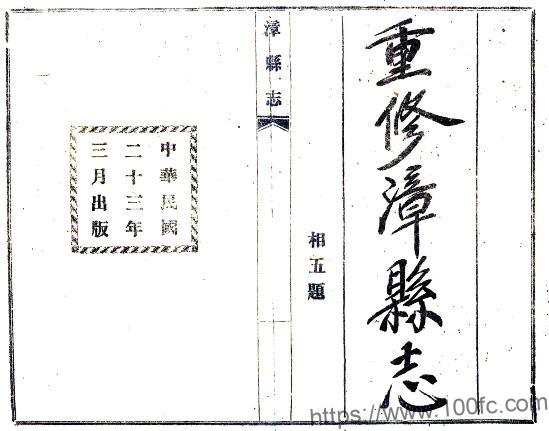 重修漳縣志
相五題
漳縣志
中華民國
二十三年
三月出版
https://www.100fc.com